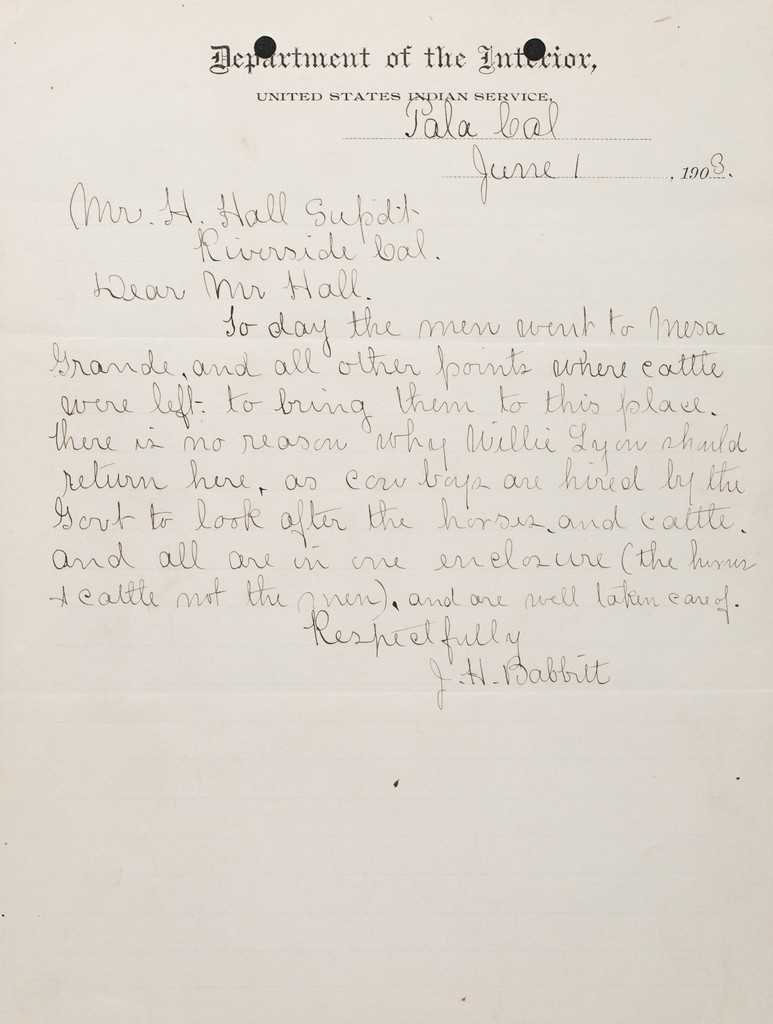 Department of the Interior,
UNITED STATES INDIAN SERVICE,
Pala Cal
June 1, 1903.
Mr. H. Hall Supdt
Riverside Cal.
Dear Mr Hall.
To day the men went to Mesa
Grande, and all other points where cattle
were left. to bring them to this place.
there is no reason why Willie Lyon should
return here, as cow boys are hired by the
Govt to look after the horses, and cattle.
and all are in one enclosure (the horses
& cattle not the men), and are well taken care of.
Respectfully
J. H. Babbitt